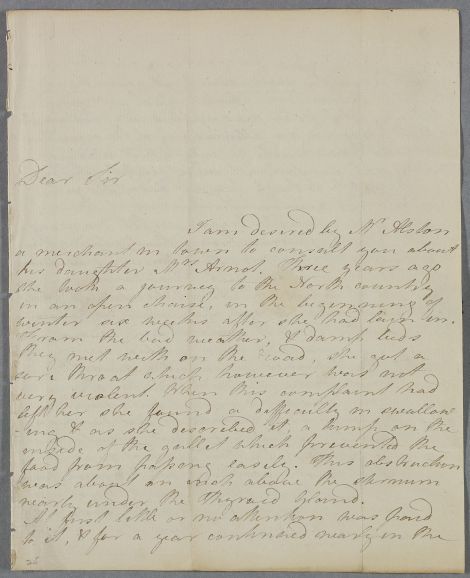 Dear Sir
I am desired by Mr Alston
a merchant in town to consult you about
his daughter Mrs Arnot. Three years ago
she took a journey to the North country
in an open chaise, in the beginning of
winter six weeks after she had lain in.
From the bad weather, & damp beds
they met with on the road, she got a
sore throat which however was not
very violent. When this complaint had
left her she found a difficulty in swallow
-ing & as she described it, a lump on the
inside of the gullet which prevented the
food from passing easily. This obstruction
was about an inch above the sternum
nearly under the Thyroid Gland.
At first little or no attention was paid
to it, & for a year continued nearly in the